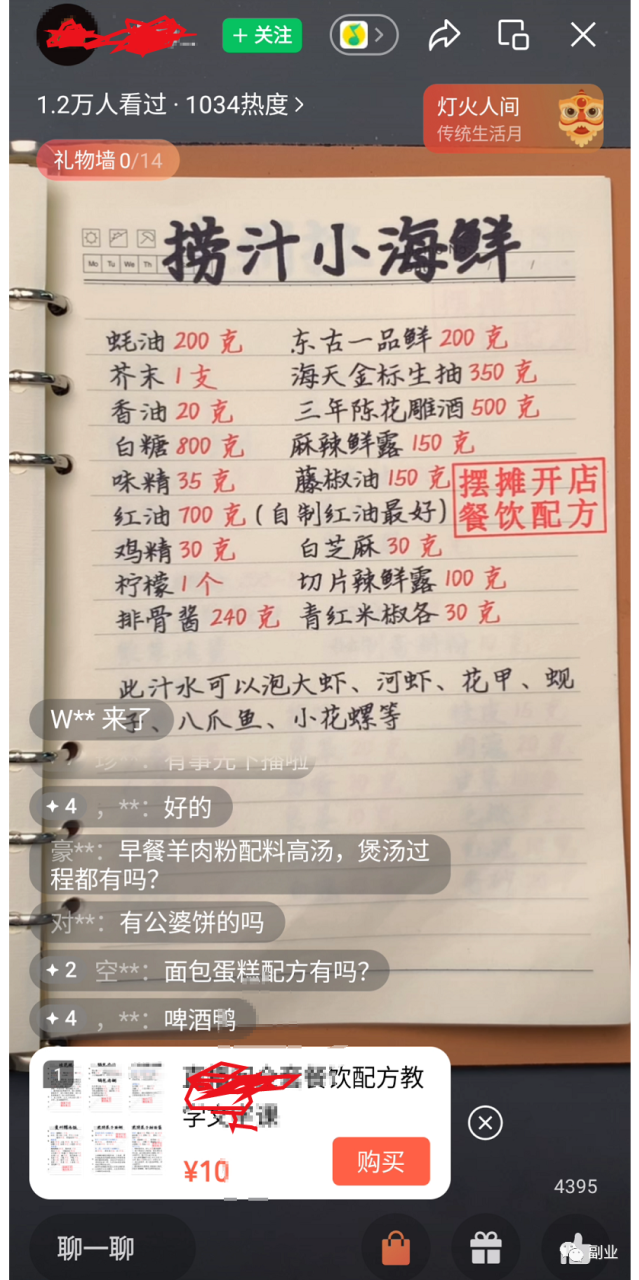 + 关注
1.2万人看过 · 1034热度 >
灯火人间
传统生活月
礼物墙 0/14
捞汁小海鲜
Mo Tu We Th
蚝油 200 克 东古一品鲜 200 克
芥末 1 支 海天金标生抽 350 克
香油 20 克 三年陈花雕酒 500 克
白糖 800 克 麻辣鲜露 150 克
味精 35 克 藤椒油 150 克
红油 700 克 (自制红油最好)
摆摊开店
餐饮配方
鸡精 30 克 白芝麻 30 克
柠檬 1 个 切片辣鲜露 100 克
排骨酱 240 克 青红米椒各 30 克
此汁水可以泡大虾、河虾、花甲、蚬
子、八爪鱼、小花螺等
W** 来了
珍**: 有事先下播啦
4 , **: 好的
豪**: 早餐羊肉粉配料高汤，煲汤过
程都有吗?
对**: 有公婆饼的吗
2 空**: 面包蛋糕配方有吗?
4 , **: 啤酒鸭
1
餐饮配方教
学
课
¥10
购买
4395
聊一聊
副业